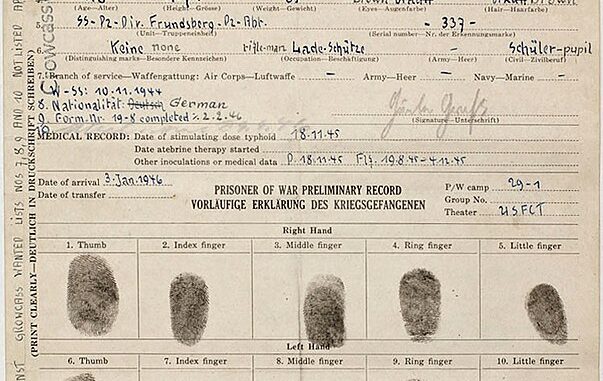 (Age—Alter) (Height—Grösse) (Weight—Gewicht) (Eyes—Augenfarbe) (Hair—Haarfarbe)
5. SS-Pz-Div. Frundsberg-Pz-Abt. - 337-
(Unit—Truppeneinheit) (Serial number—Nr. der Erkennungsmarke)
6. Keine none rifle-man Lade-Schütze - Schüler-pupil
(Distinguishing marks—Besondere Kennzeichen) (Occupation—Beschäftigung) (Army—Heer) (Civil—Zivilberuf)
7. Branch of service—Waffengattung: Air Corps—Luftwaffe - Army—Heer - Navy—Marine -
W-SS: 10.11.1944
8. Nationalität: Deutsch German
9. Form-Nr. 19-8 completed 2.2.46
(Signature—Unterschrift)
MEDICAL RECORD: Date of stimulating dose typhoid 18.11.45
Date atebrine therapy started
Other inoculations or medical data P. 18.11.45 Flf. 19.8.45-4.12.45
Date of arrival 3. Jan. 1946
Date of transfer
PRISONER OF WAR PRELIMINARY RECORD
VORLÄUFIGE ERKLÄRUNG DES KRIEGSGEFANGENEN
P/W camp 29-1
Group No.
Theater USFET
Right Hand
1. Thumb 2. Index finger 3. Middle finger 4. Ring finger 5. Little finger
Left Hand
6. Thumb 7. Index finger 8. Middle finger 9. Ring finger 10. Little finger
(PRINT CLEARLY—DEUTLICH IN DRUCKSCHRIFT SCHREIBEN)
CROWCASS WANTED LISTS NOS 7, 8, 9 AND 10 NOT LISTED